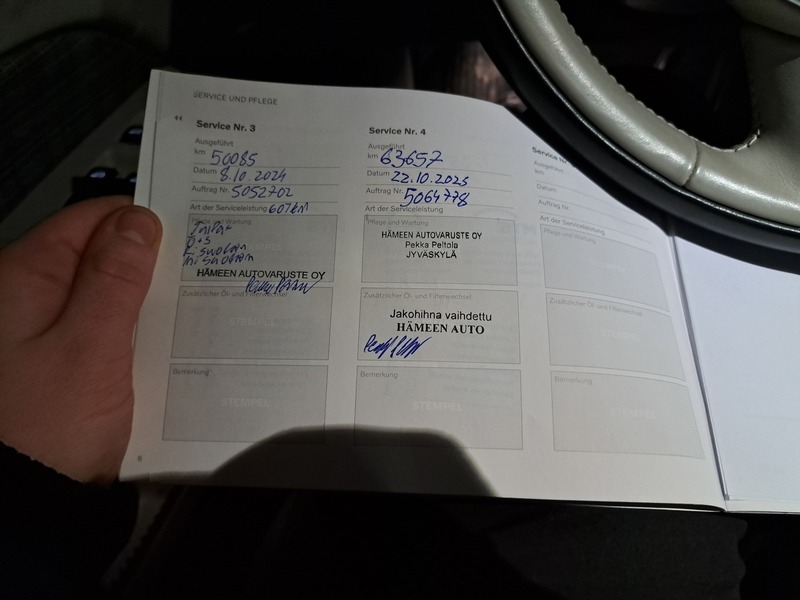 SERVICE UND PFLEGE
Service Nr. 3
Ausgeführt
km 50085
Datum 8.10.2024
Auftrag Nr. 5052702
Art der Serviceleistung
Pflege und Wartung
HÄMEEN AUTOVARUSTE OY
Zusätzlicher Öl- und Filterwechsel
STEMPEL
Bemerkung
STEMPEL
6
Service Nr. 4
Ausgeführt
km 63657
Datum 22.10.2025
Auftrag Nr. 5064778
Art der Serviceleistung
Pflege und Wartung
HÄMEEN AUTOVARUSTE OY
Pekka Peltola
JYVÄSKYLÄ
Zusätzlicher Öl- und Filterwechsel
Jakohihna vaihdettu
HÄMEEN AUTO
Bemerkung
STEMPEL
Service
Ausgeführt
km
Datum
Auftrag Nr.
Art der Serviceleistung
Pflege und Wartung
Zusätzlicher Öl- und Filterwechsel
STEMPEL
Bemerkung
STEMPEL